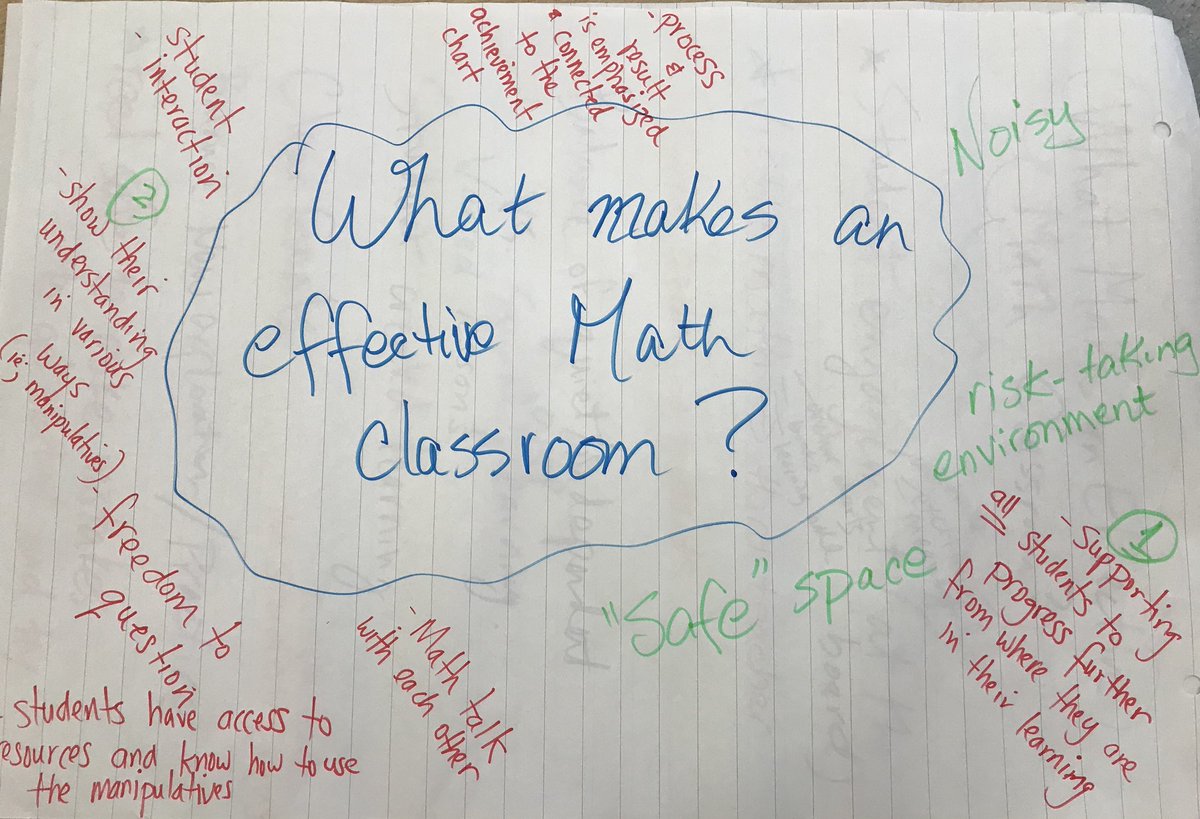 What makes an
effective Math
classroom?
- process
& result
is emphasized
• connected
to the
achievement
chart
Noisy
risk-taking
environment
1
- supporting
all students to
progress further
from where they are
in their learning
"Safe" space
- Math talk
with each other
- students have access to
resources and know how to use
the manipulatives
- freedom to
question
2
- show their
understanding
in various
ways
(ie; manipulatives)
- student
interaction